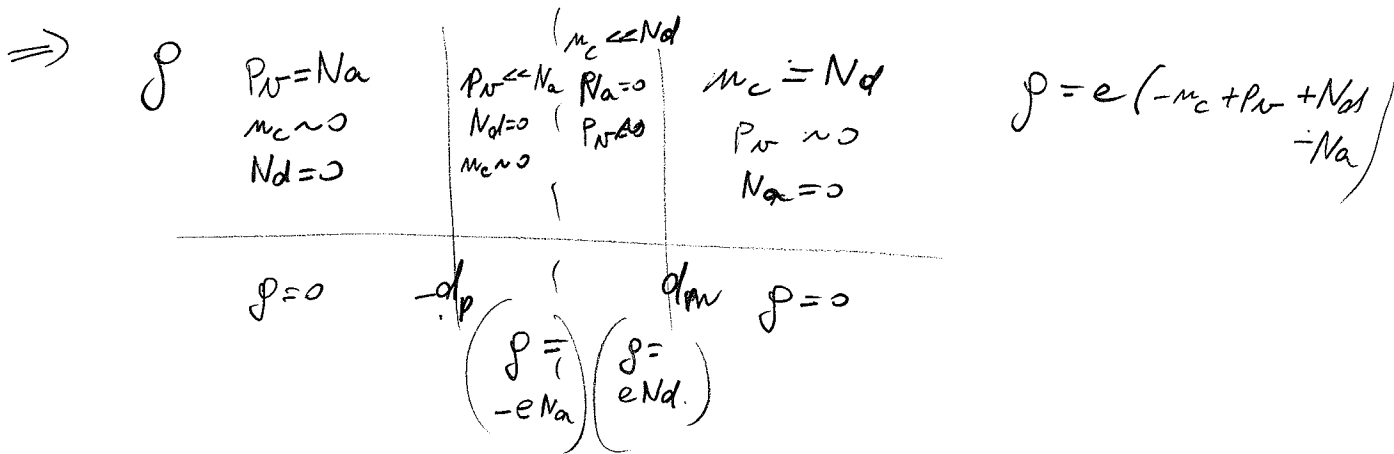 ⇒ ρ
P_v = Na
n_c ~ 0
Nd = 0
P_v << Na
Nd = 0
n_c ~ 0
n_c << Nd
Na = 0
n_c = Nd
P_v ~ 0
Na = 0
ρ = e (-n_c + P_v + Nd
-Na)
ρ = 0
-dp
ρ =
-e Na
ρ =
e Nd.
dn
ρ = 0